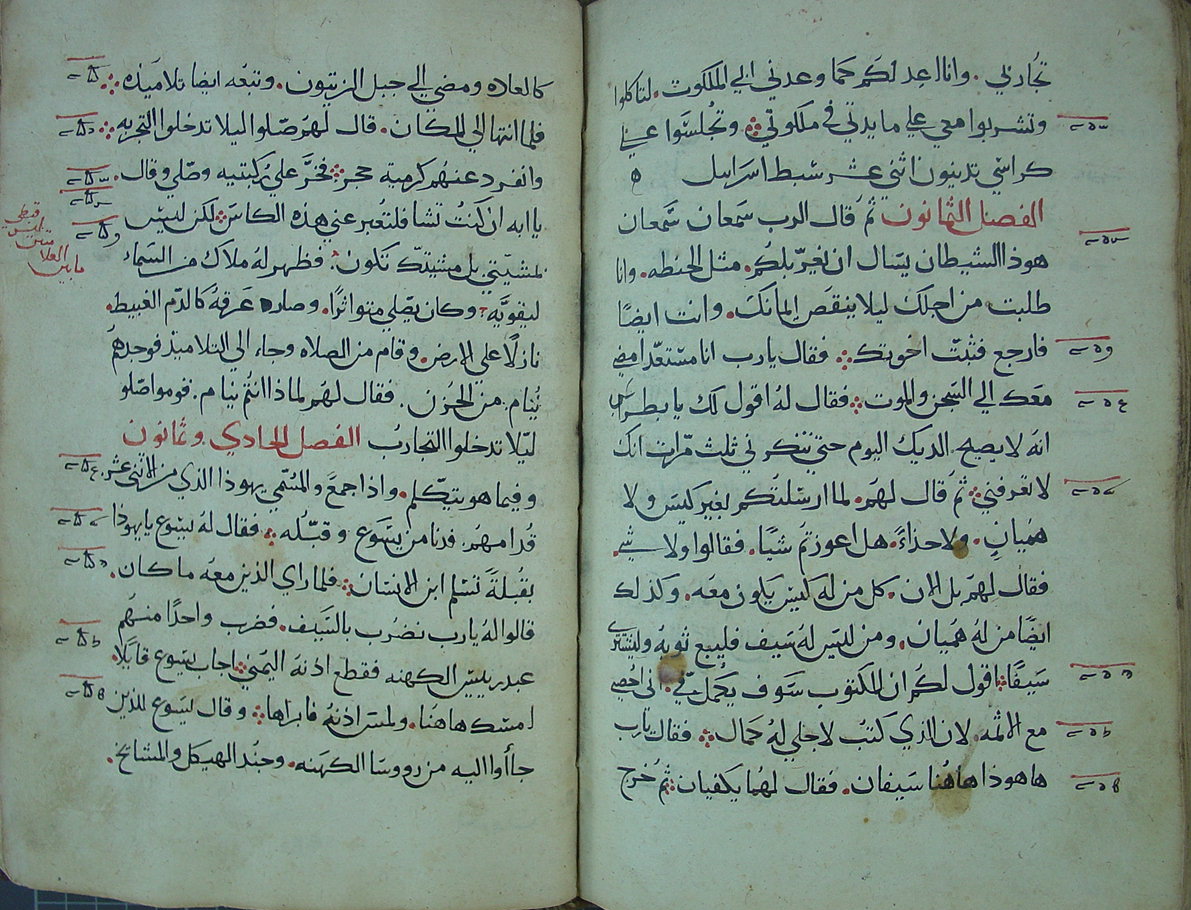 تجاربي. وانا اعد لكم كما وعدني ابي الملكوت. لتاكلوا
وتشربوا معي علي مايدتي في ملكوتي وتجلسوا علي
كراسي تدينون اثني عشر شبط اسراييل ه
الفصل الثمانون ثم قال الرب سمعان سمعان
هوذا الشيطان يسال ان يغربلكم. مثل الحنطه. وانا
طلبت من اجلك ليلا ينقص ايمانك. وانت ايضًا
فارجع فثبت اخوتك فقال يارب انا مستعد امضي
معك الي السجن والموت فقال له اقول لك يا بطرس
انه لا يصيح الديك اليوم حتي تنكرني ثلث مرات انك
لا تعرفني ثم قال لهم. لما ارسلتكم بغير كيس ولا
هميان. ولا حذاءً. هل اعوزتم شيًا. فقالوا ولا شي.
فقال لهم بل الان. كل من له كيس يكون معه. وكذلك
ايضًا من له هميان. ومن ليس له سيف فليبع ثوبه وليشتري
سيفًا اقول لكم ان المكتوب سوف يكمل في. اني احصي
مع الاثمه. لان الذي كتب لاجلي له كمال فقال يارب
ها هوذا هاهنا سيفان. فقال لهما يكفيان ثم خرج
كالعاده ومضي الي جبل الزيتون. وتبعه ايضا تلاميذه
فلما انتها الي المكان. قال لهم صلوا ليلا تدخلوا التجربه
وانفرد عنهم كرمية حجر فخرَّ علي ركبتيه وصلي وقال.
يا ابه ان كنت تشا فلتعبر عني هذه الكاس لكن ليس
لمشيتي بل مشيتك تكون. فظهر له ملاك من السماء
ليقويه وكان يصلي متواترًا. وصار عرقه كالدم الغبيط.
نازلًا علي الارض. وقام من الصلاه وجاء الي التلاميذ فوجدهم
نيام. من الحزن. فقال لهم لماذا انتم نيام. قوموا صلو
ليلا تدخلوا التجارب الفصل الحادي وثمانون
وفيما هو يتكلم. واذا جمع والمسمي يهوذا الذي من الاثني عشر
قدامهم. فدنا من يسوع وقبله. فقال له يسوع يا يهوذا
بقبلة تسلم ابن الانسان فلما راي الذين معه ما كان.
قالوا له يارب نضرب بالسيف. فضرب واحدًا منهم
عبد رييس الكهنه فقطع اذنه اليمني اجاب يسوع قايلًا.
امسك هاهنا. ولمس اذنه فابراها وقال يسوع للذين
جأوا اليه من رووسا الكهنه. وجند الهيكل والمشايخ.
قبطي
ليس
مابين العلامتين